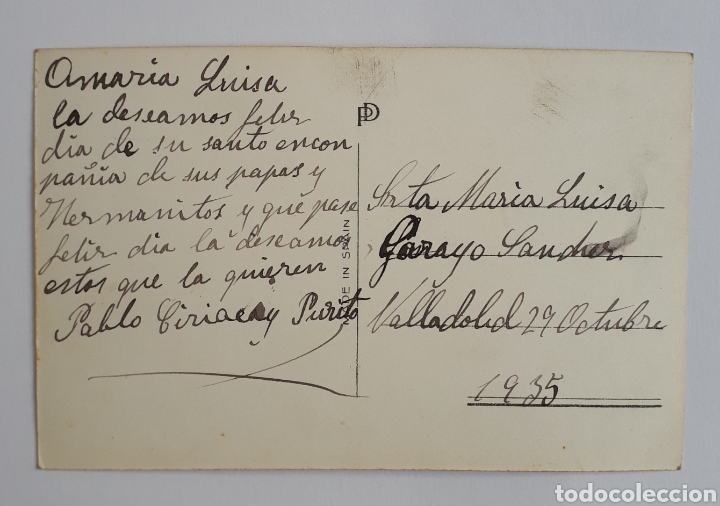 Amaria Luisa
la deseamos feliz
dia de su santo encon
pañia de sus papas y
Hermanitos y que pase
feliz dia la deseamos
estos que la quieren
Pablo Ciriaca y Purito
PD
MADE IN SPAIN
Srta Maria Luisa
Garayo Sanchez
Valladolid 27 Octubre
1935
todocoleccion